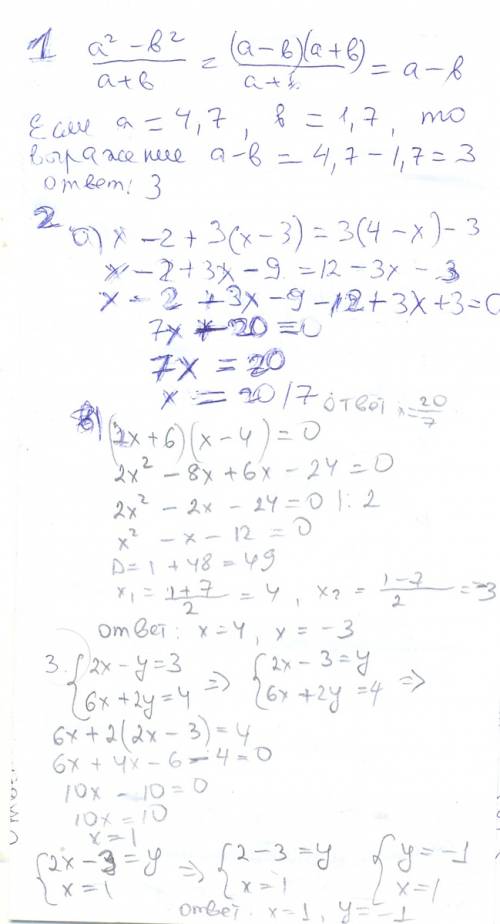 1 a² - в² / a+в = (a-в)(a+в) / a+в = a-в
Если a = 4,7, в = 1,7, то
выражение a-в = 4,7-1,7=3
ответ: 3
2
а) x - 2 + 3(x-3) = 3(4-x) - 3
x - 2 + 3x - 9 = 12 - 3x - 3
x - 2 + 3x - 9 - 12 + 3x + 3 = 0
7x - 20 = 0
7x = 20
x = 20/7 ответ x = 20/7
в) (2x+6)(x-4) = 0
2x² - 8x + 6x - 24 = 0
2x² - 2x - 24 = 0 |: 2
x² - x - 12 = 0
D = 1 + 48 = 49
x₁ = 1+7 / 2 = 4, x₂ = 1-7 / 2 = -3
ответ: x=4, x = -3
3. { 2x - y = 3 => { 2x - 3 = y
6x + 2y = 4 6x + 2y = 4 =>
6x + 2(2x - 3) = 4
6x + 4x - 6 - 4 = 0
10x - 10 = 0
10x = 10
x = 1
{ 2x - 3 = y => { 2 - 3 = y { y = -1
x = 1 x = 1 x = 1
ответ. x = 1, y = -1